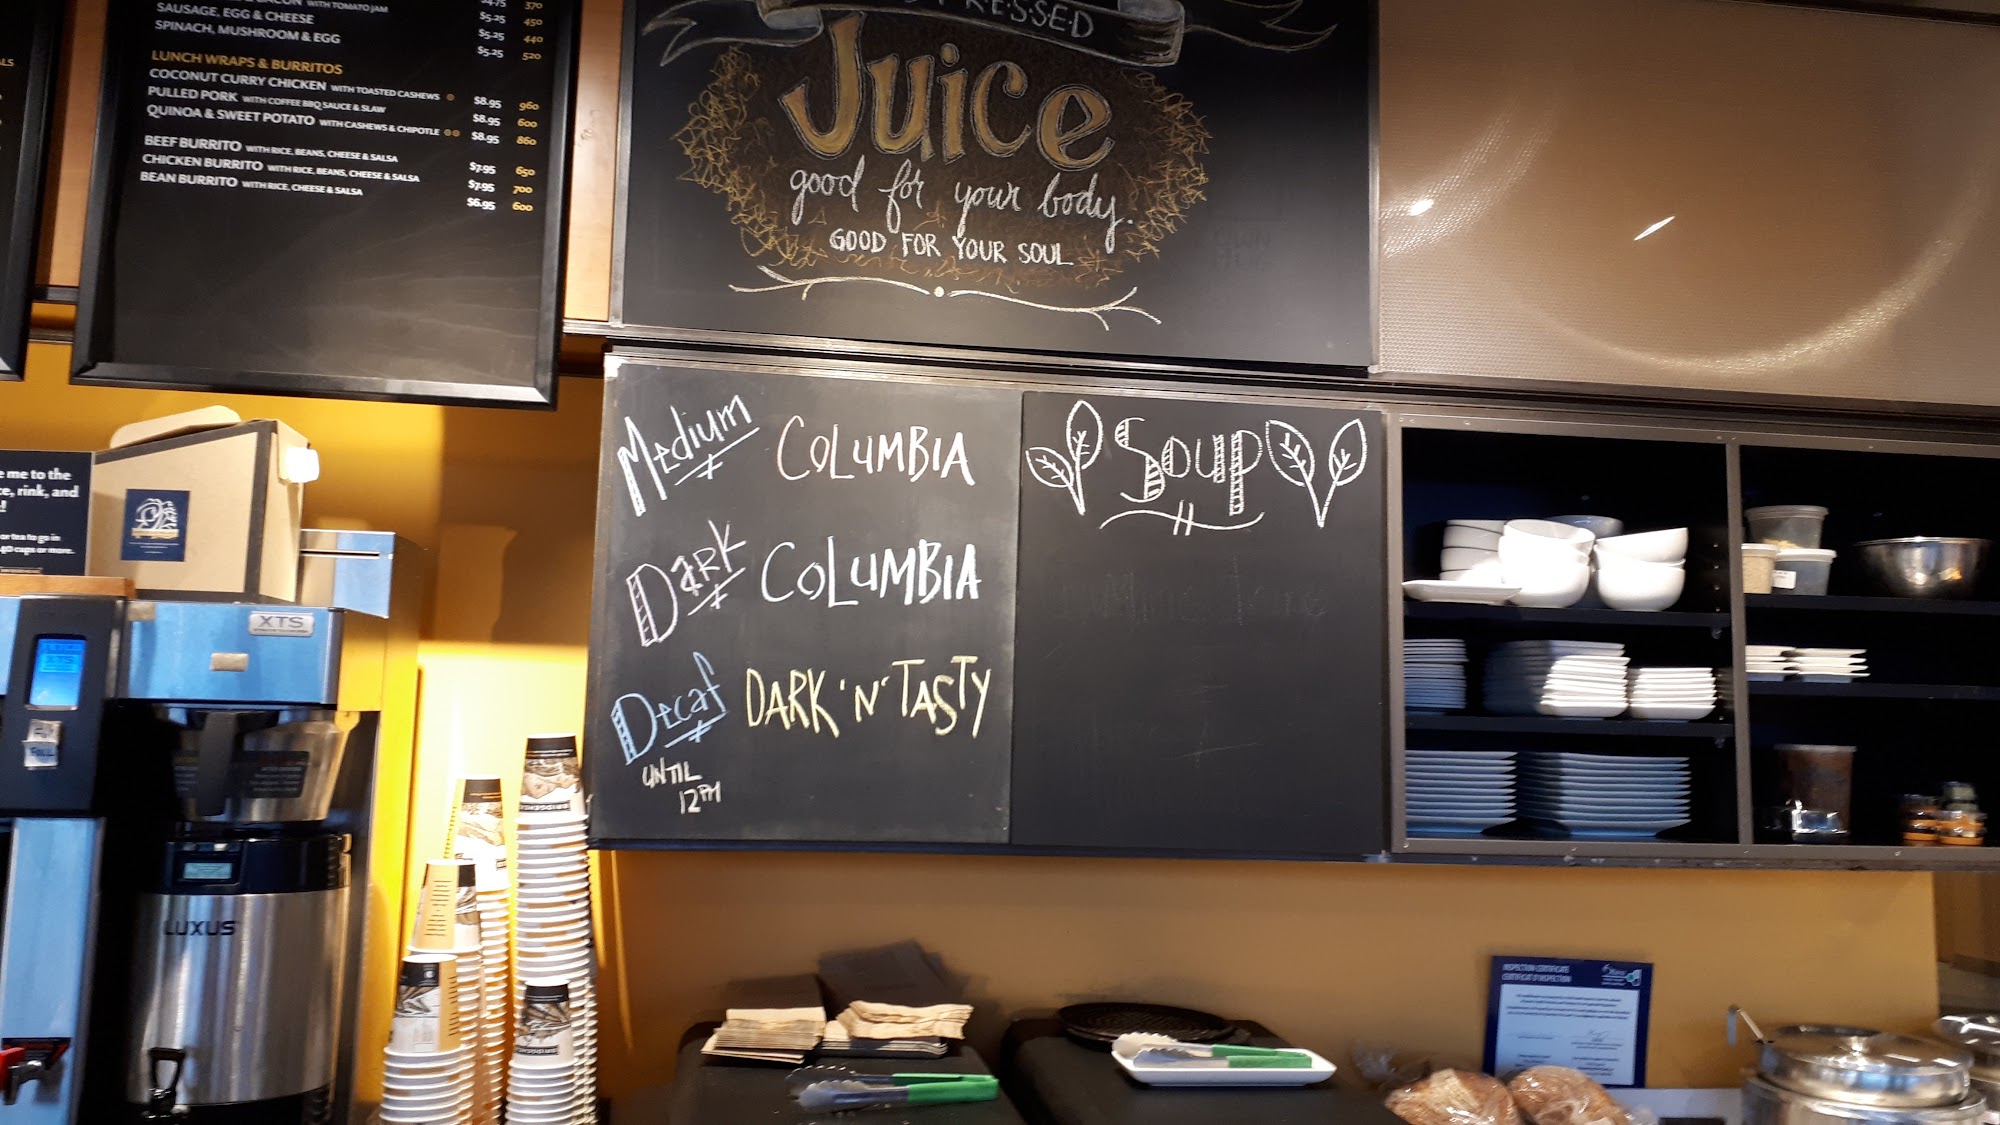 WITH TOMATO JAM 370
SAUSAGE, EGG & CHEESE $5.25 450
SPINACH, MUSHROOM & EGG $5.25 440
$5.25 520
LUNCH WRAPS & BURRITOS
COCONUT CURRY CHICKEN WITH TOASTED CASHEWS $8.95 960
PULLED PORK WITH COFFEE BBQ SAUCE & SLAW $8.95 600
QUINOA & SWEET POTATO WITH CASHEWS & CHIPOTLE $8.95 860
BEEF BURRITO WITH RICE, BEANS, CHEESE & SALSA $7.95 650
CHICKEN BURRITO WITH RICE, BEANS, CHEESE & SALSA $7.95 700
BEAN BURRITO WITH RICE, CHEESE & SALSA $6.95 600
Juice
good for your body.
GOOD FOR YOUR SOUL
Medium COLUMBIA
Dark COLUMBIA
Decaf DARK 'N' TASTY
UNTIL
12PM
Soup
me to the
rink, and
tea to go in
cups or more.
XTS
XTS
FULL
LUXUS
INSPECTION CERTIFICATE
CERTIFICAT D'INSPECTION